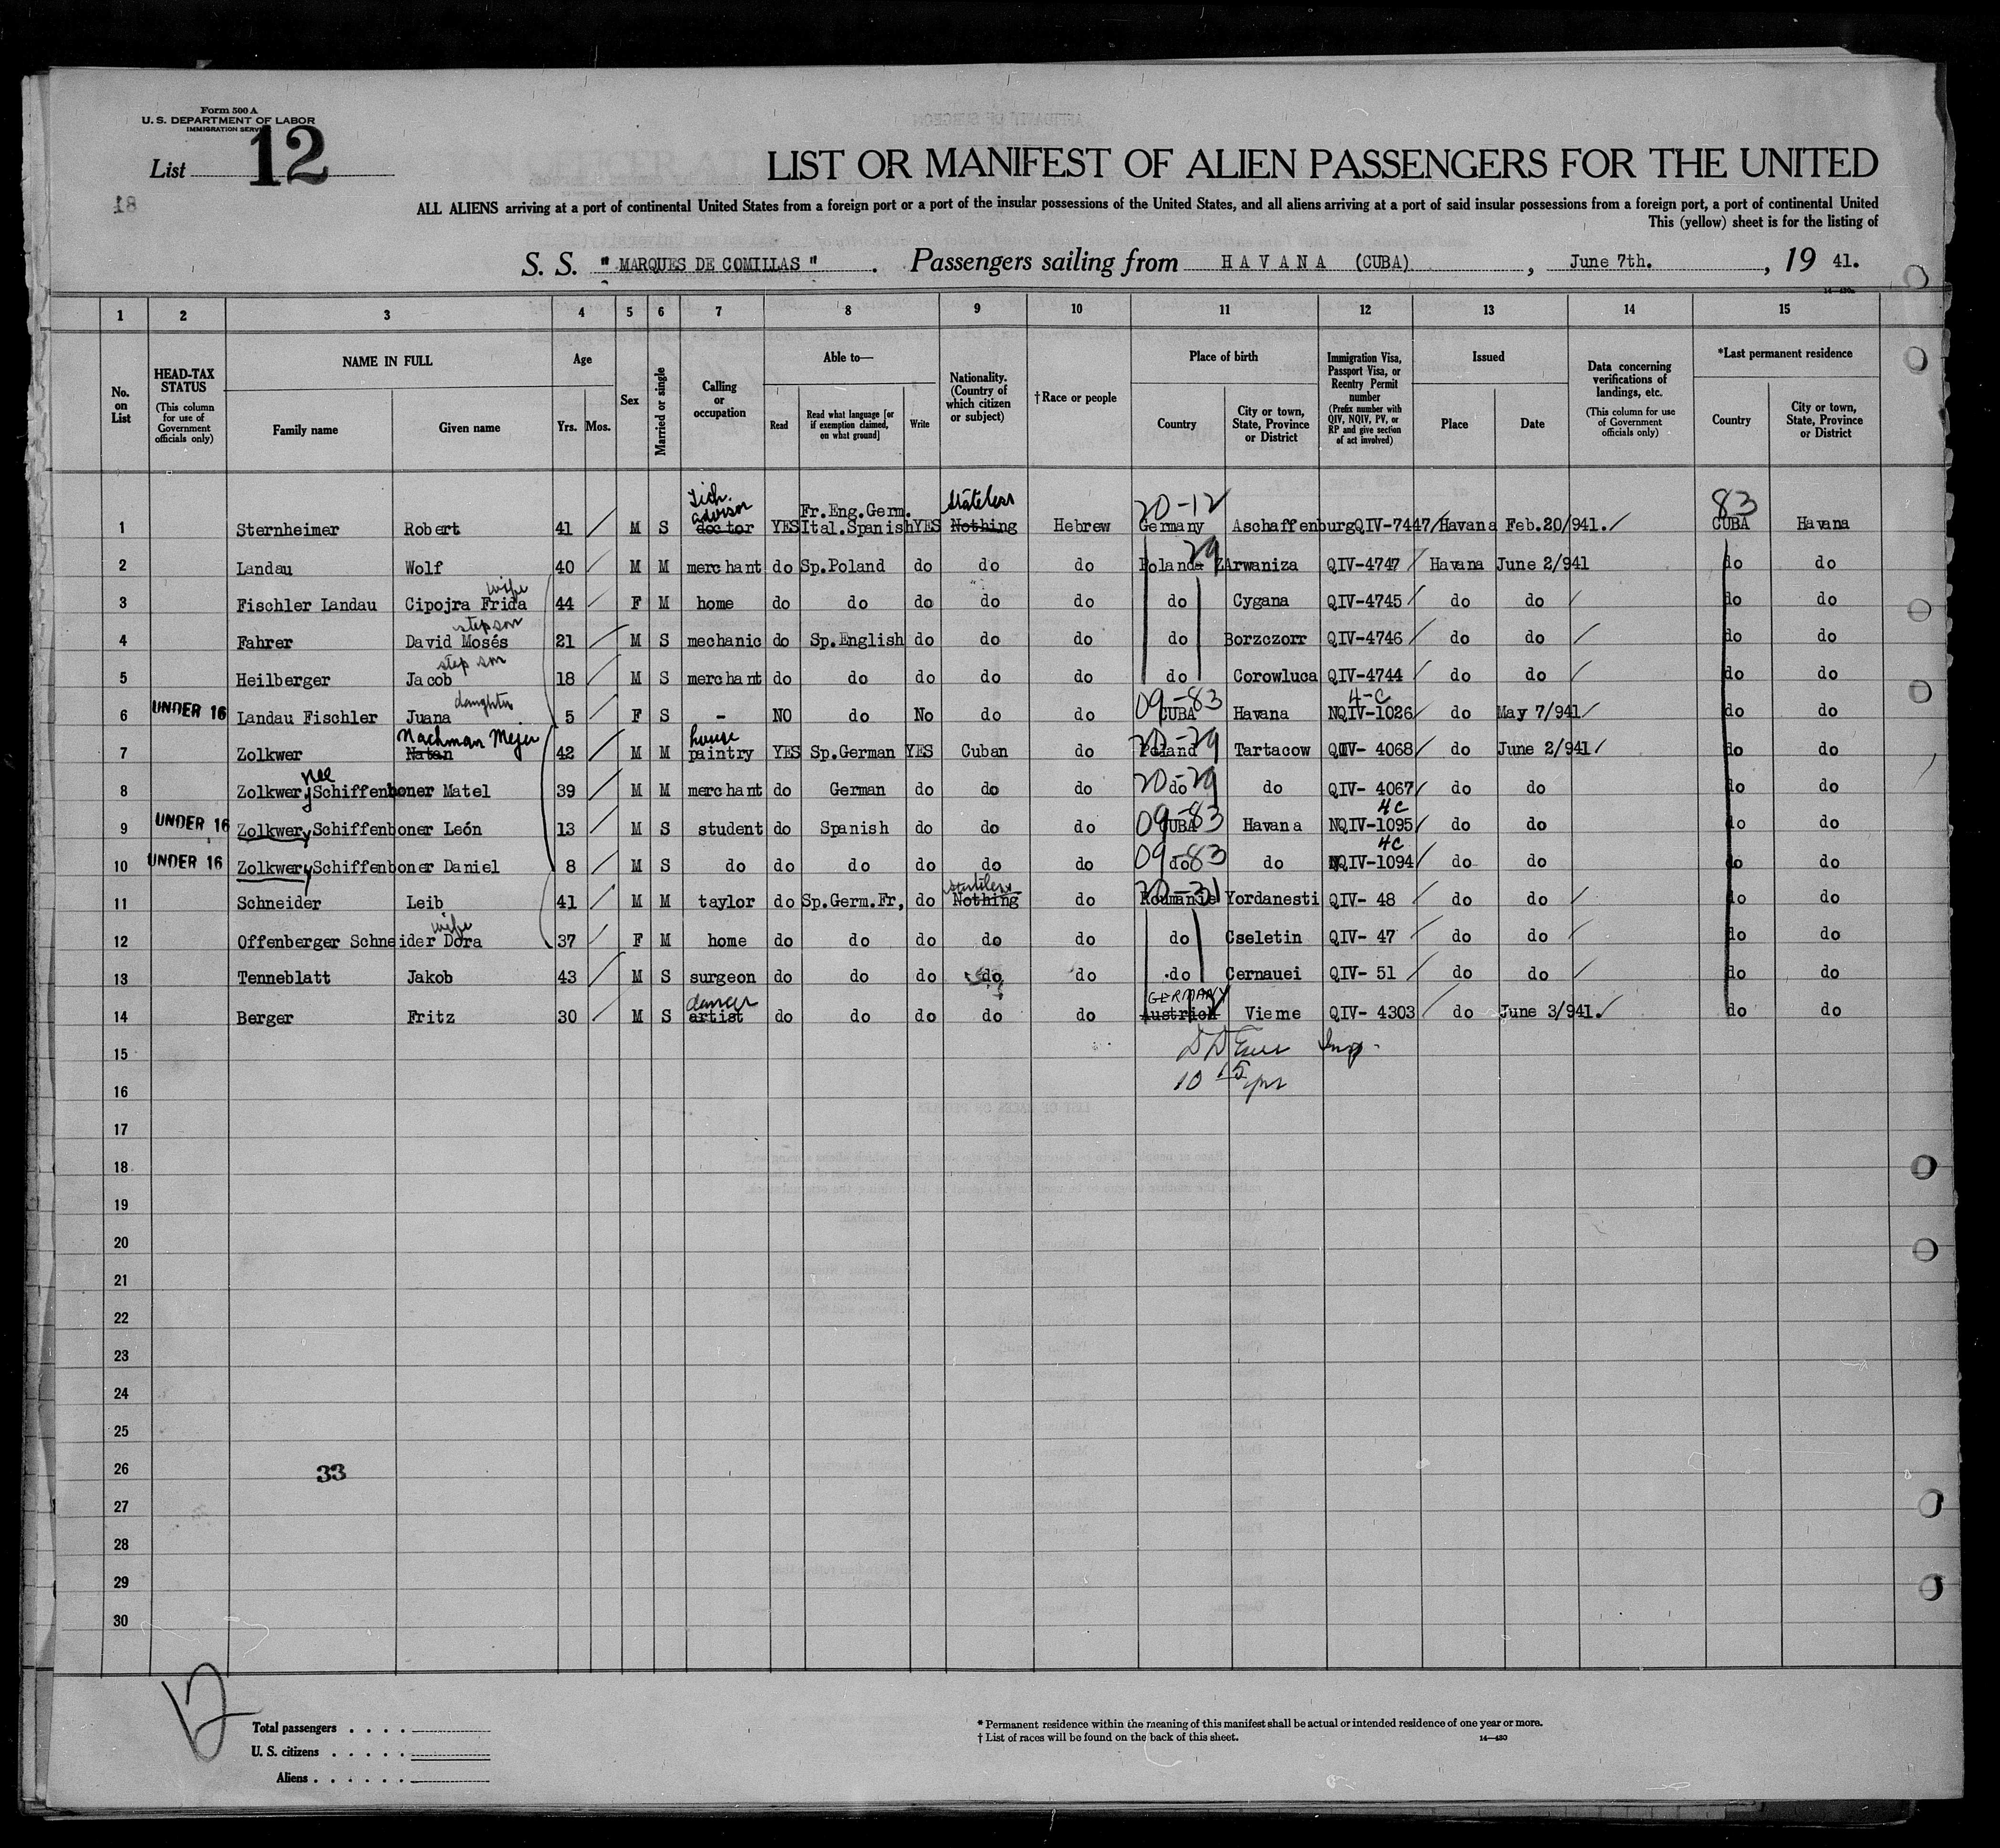 Form 500 A
U. S. DEPARTMENT OF LABOR
IMMIGRATION SERVICE
List 12
LIST OR MANIFEST OF ALIEN PASSENGERS FOR THE UNITED
ALL ALIENS arriving at a port of continental United States from a foreign port or a port of the insular possessions of the United States, and all aliens arriving at a port of said insular possessions from a foreign port, a port of continental United
This (yellow) sheet is for the listing of
S. S. "MARQUES DE COMILLAS". Passengers sailing from HAVANA (CUBA), June 7th., 19 41.
1 2 3 4 5 6 7 8 9 10 11 12 13 14 15
No. on List
HEAD-TAX STATUS (This column for use of Government officials only)
NAME IN FULL
Family name Given name
Age
Yrs. Mos.
Sex
Married or single
Calling or occupation
Able to—
Read Read what language [or if exemption claimed, on what ground] Write
Nationality. (Country of which citizen or subject)
†Race or people
Place of birth
Country City or town, State, Province or District
Immigration Visa, Passport Visa, or Reentry Permit number (Prefix number with QIV, NQIV, PV, or RP and give section of act involved)
Issued
Place Date
Data concerning verifications of landings, etc. (This column for use of Government officials only)
*Last permanent residence
Country City or town, State, Province or District
Tech. advisor stateless 20-12 83
1 Sternheimer Robert 41 M S doctor YES Fr.Eng.Germ. Ital.Spanish YES Nothing Hebrew Germany Aschaffenburg QIV-7447 Havana Feb.20/941. CUBA Havana
2 Landau Wolf 40 M M merchant do Sp.Poland do do do Poland 29 ZArwaniza QIV-4747 Havana June 2/941 do do
3 Fischler Landau Cipojra Frida wife 44 F M home do do do do do do Cygana QIV-4745 do do do do
4 Fahrer David Mosés stepson 21 M S mechanic do Sp.English do do do do Borzczorr QIV-4746 do do do do
5 Heilberger Jacob step son 18 M S merchant do do do do do do Corowluca QIV-4744 do do do do
6 UNDER 16 Landau Fischler Juana daughter 5 F S - NO do No do do 09-83 CUBA Havana 4-C NQIV-1026 do May 7/941 do do
7 Zolkwer Natan Nachman Mejer 42 M M house paintry YES Sp.German YES Cuban do 20-29 Poland Tartacow QIV- 4068 do June 2/941 do do
8 Zolkwer y nee Schiffenboner Matel 39 M M merchant do German do do do 20-29 do do QIV- 4067 do do do do
9 UNDER 16 Zolkwer y Schiffenboner León 13 M S student do Spanish do do do 09-83 CUBA Havana 4C NQIV-1095 do do do do
10 UNDER 16 Zolkwer y Schiffenboner Daniel 8 M S do do do do do do 09-83 do do 4C NQIV-1094 do do do do
11 Schneider Leib 41 M M taylor do Sp.Germ.Fr, do stateless Nothing do 20-31 Roumanie Yordanesti QIV- 48 do do do do
12 Offenberger Schneider Dora wife 37 F M home do do do do do do Cseletin QIV- 47 do do do do
13 Tenneblatt Jakob 43 M S surgeon do do do do do do Cernauei QIV- 51 do do do do
14 Berger Fritz 30 M S dancer artist do do do do do GERMANY Austrich Vieme QIV- 4303 do June 3/941. do do
15 Insp.
16 10 15 pm
17
18
19
20
21
22
23
24
25
26 33
27
28
29
30
12
Total passengers
U. S. citizens
Aliens
* Permanent residence within the meaning of this manifest shall be actual or intended residence of one year or more.
† List of races will be found on the back of this sheet.
14—430